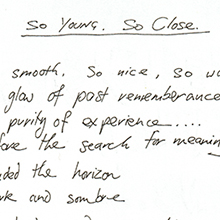 So Young. So Close.
smooth. So nice, so
glow of past rememberance
purity of experience....
the search for meanin
the horizon
and sombre